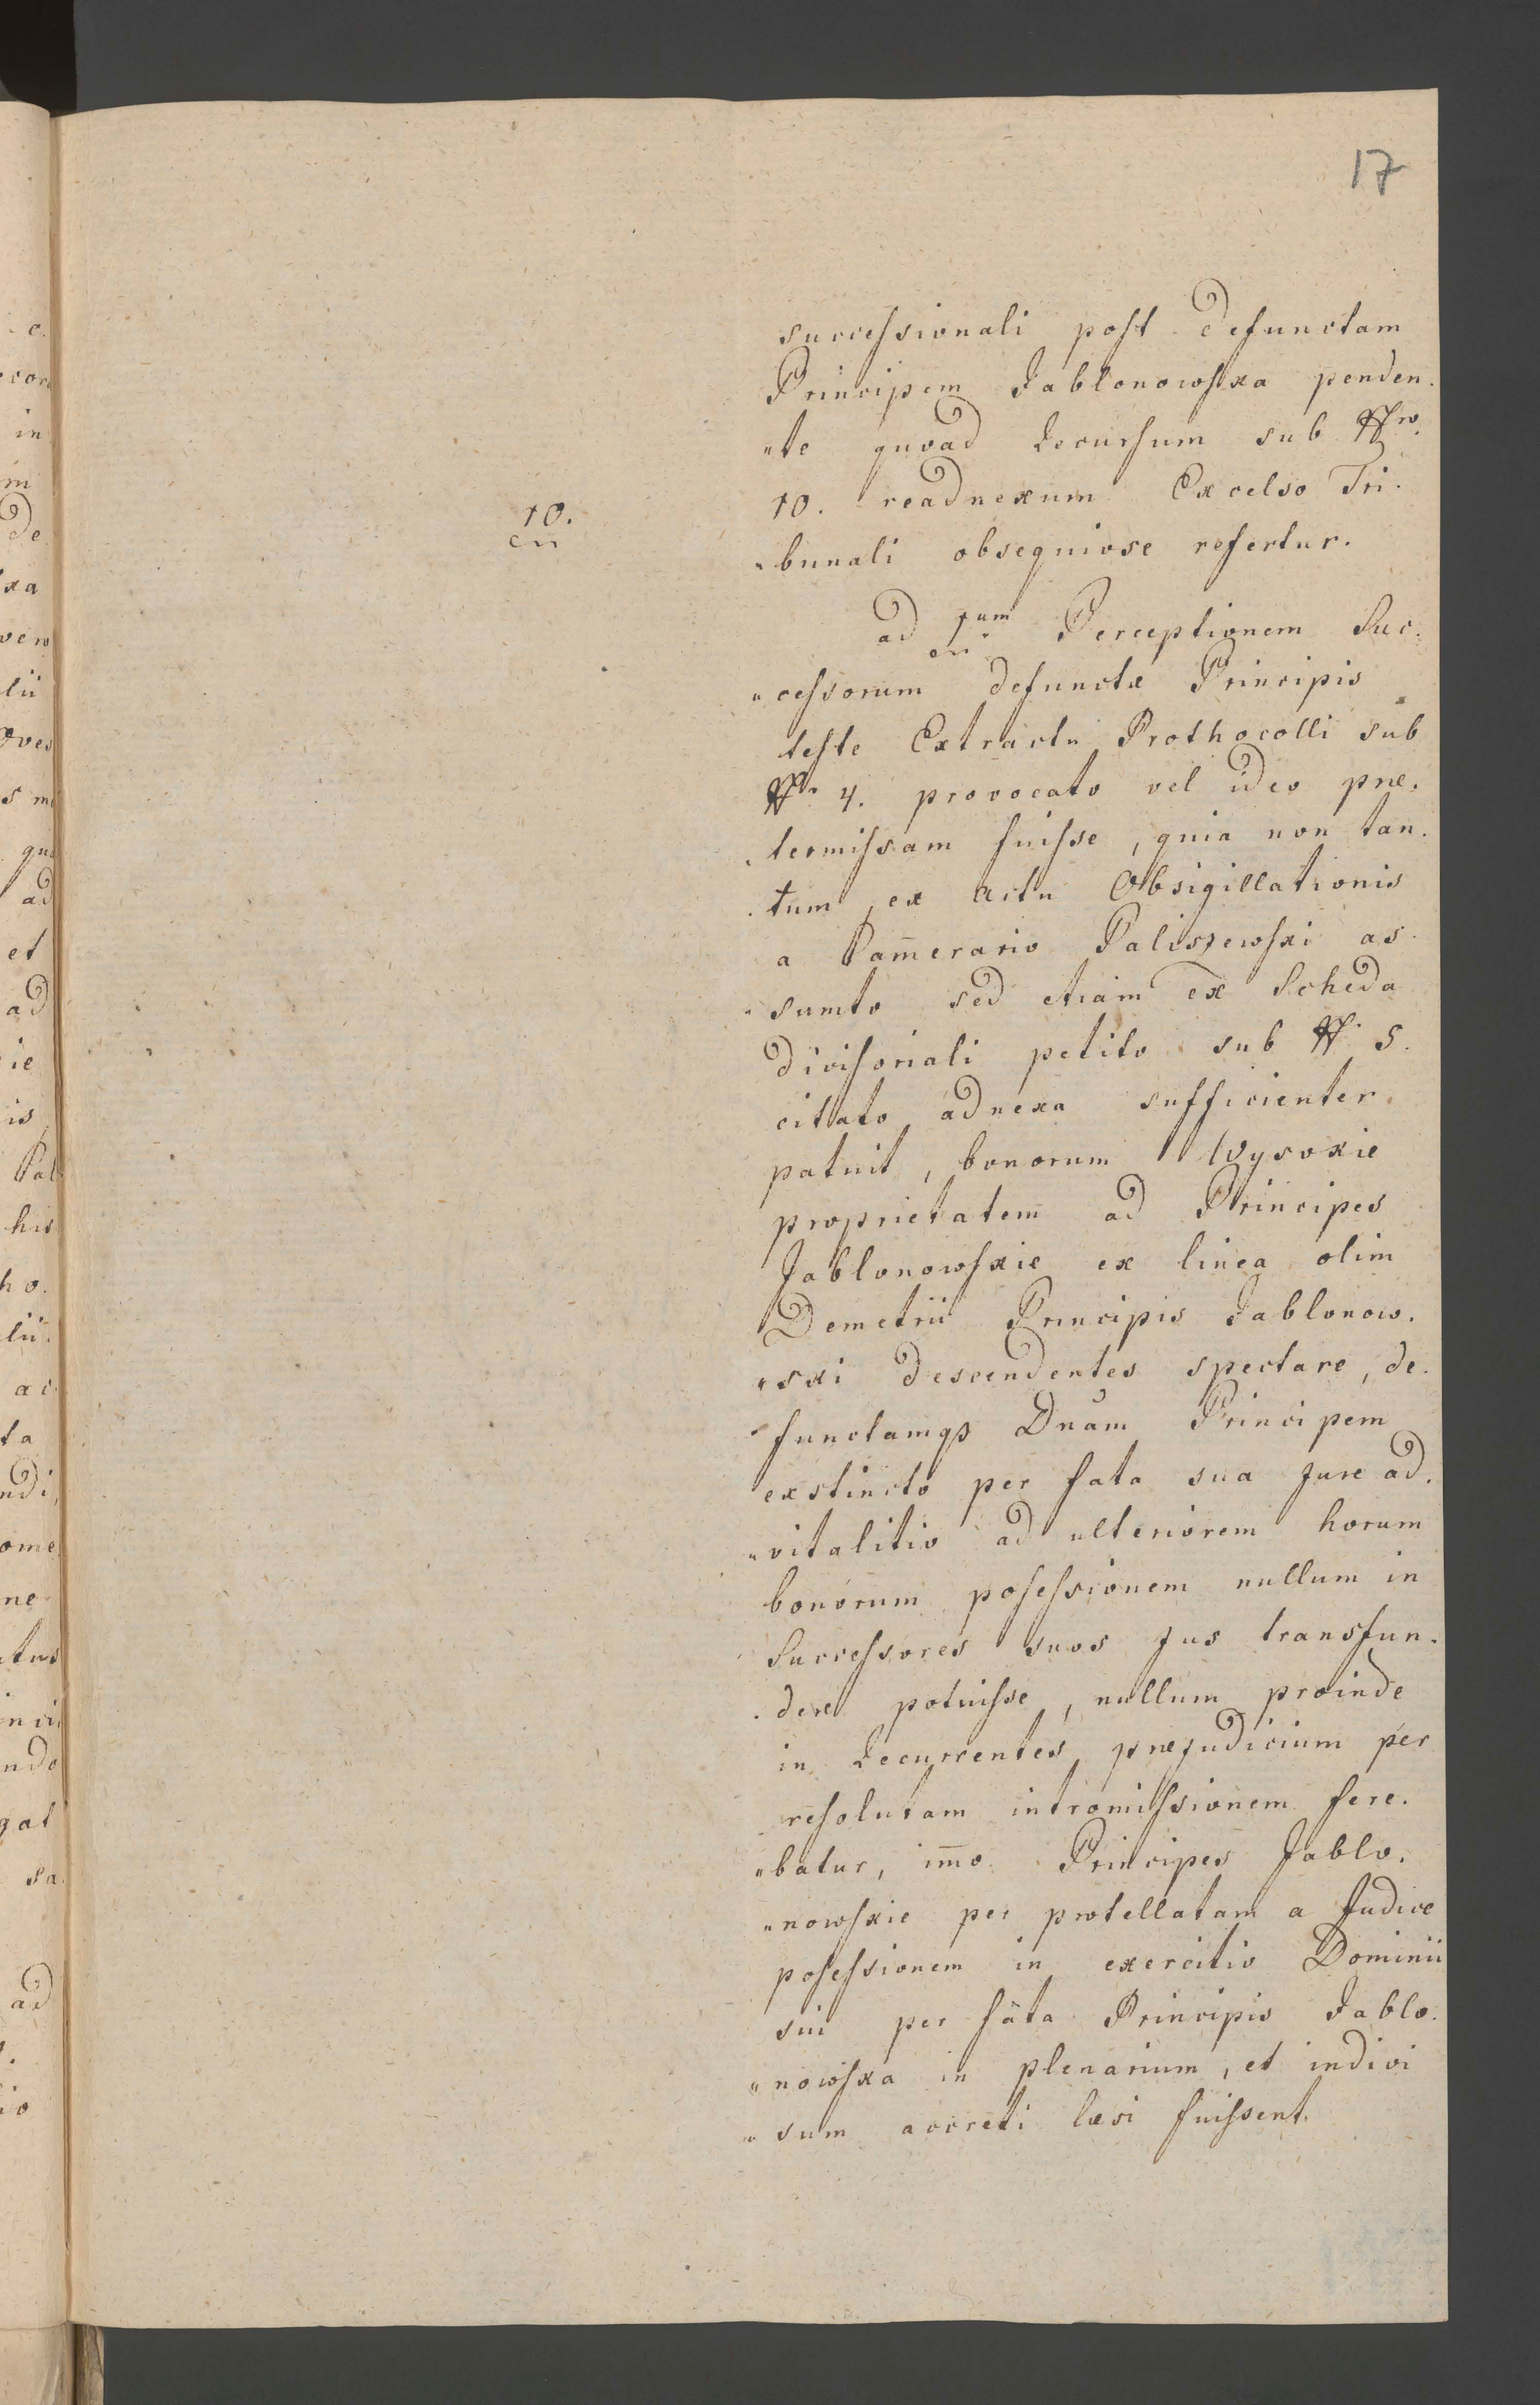 17
successionali post defunctam
Principem Jablonowska penden.
"te quoad Recursum sub Nro.
10.
10. readnexum Excelso Tri.
"bunali obsequiose refertur.
ad 1um Perceptionem Suc.
"cessorum defunctæ Principis
teste Extractu Prothocolli sub
Nr. 4. provocato vel ideo præ.
"termissam fuisse, quia non tan.
"tum ex Actu Obsigillationis
a Cam̄erario Paliszewski as.
"sumto sed etiam ex Scheda
divisoriali petito sub N. 5.
citato adnexa sufficienter
patuit, bonorum Wysokie
proprietatem ad Principes
Jablonowskie ex linea olim
Demetrii Principis Jablonow.
"ski descendentes spectare, de.
"functamq3 Dnam Principem
exstincto per fata sua Jure ad.
"vitalitio ad ulteriorem horum
bonorum possessionem nullum in
Successores suos Jus transfun.
"dere potuisse, nullum proinde
in Recurrentes præjudicium per
resolutam intromissionem fere.
"batur, im̄o Principes Jablo.
"nowskie per protellatam a Judice
possessionem in exercitio Dominii
sui per fata Principis Jablo.
"nowska in plenarium, et indivi
"sum accreti læsi fuissent.